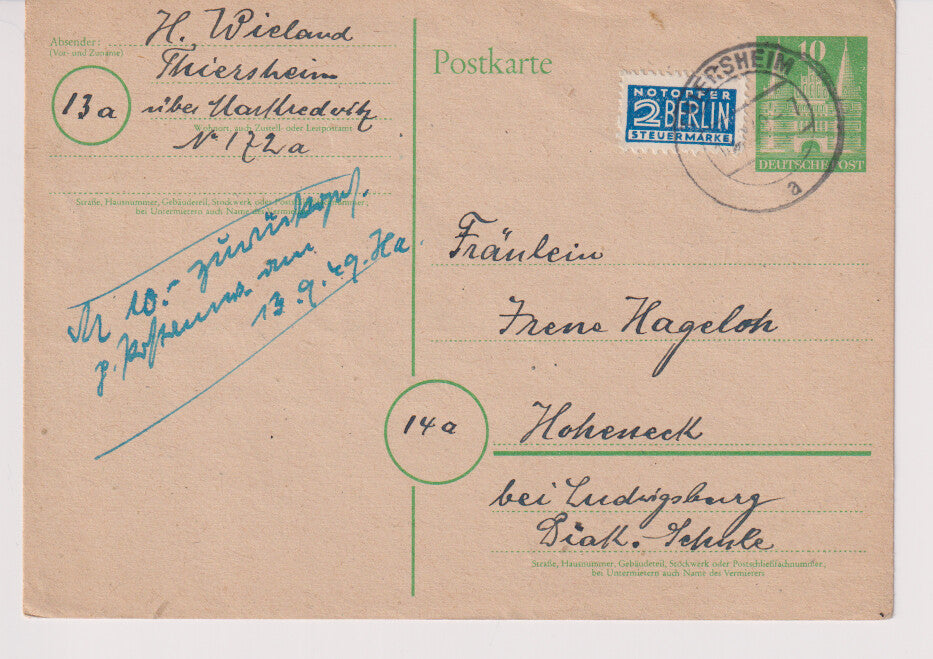 Absender:
(Vor- und Zuname)
H. Wieland
Thiersheim
13a
über Marktredwitz
Wohnort, auch Zustell- oder Leitpostamt
N° 172a
Straße, Hausnummer, Gebäudeteil, Stockwerk oder Postschließfachnummer,
bei Untermietern auch Name des Vermieters
10.- zurück
am
13.9.49. Ha.
Postkarte
NOTOPFER
2 BERLIN
STEUERMARKE
THIERSHEIM
a
10
DEUTSCHE POST
Fräulein
Irene Hageloh
14a
Hoheneck
bei Ludwigsburg
Diak. Schule
Straße, Hausnummer, Gebäudeteil, Stockwerk oder Postschließfachnummer,
bei Untermietern auch Name des Vermieters